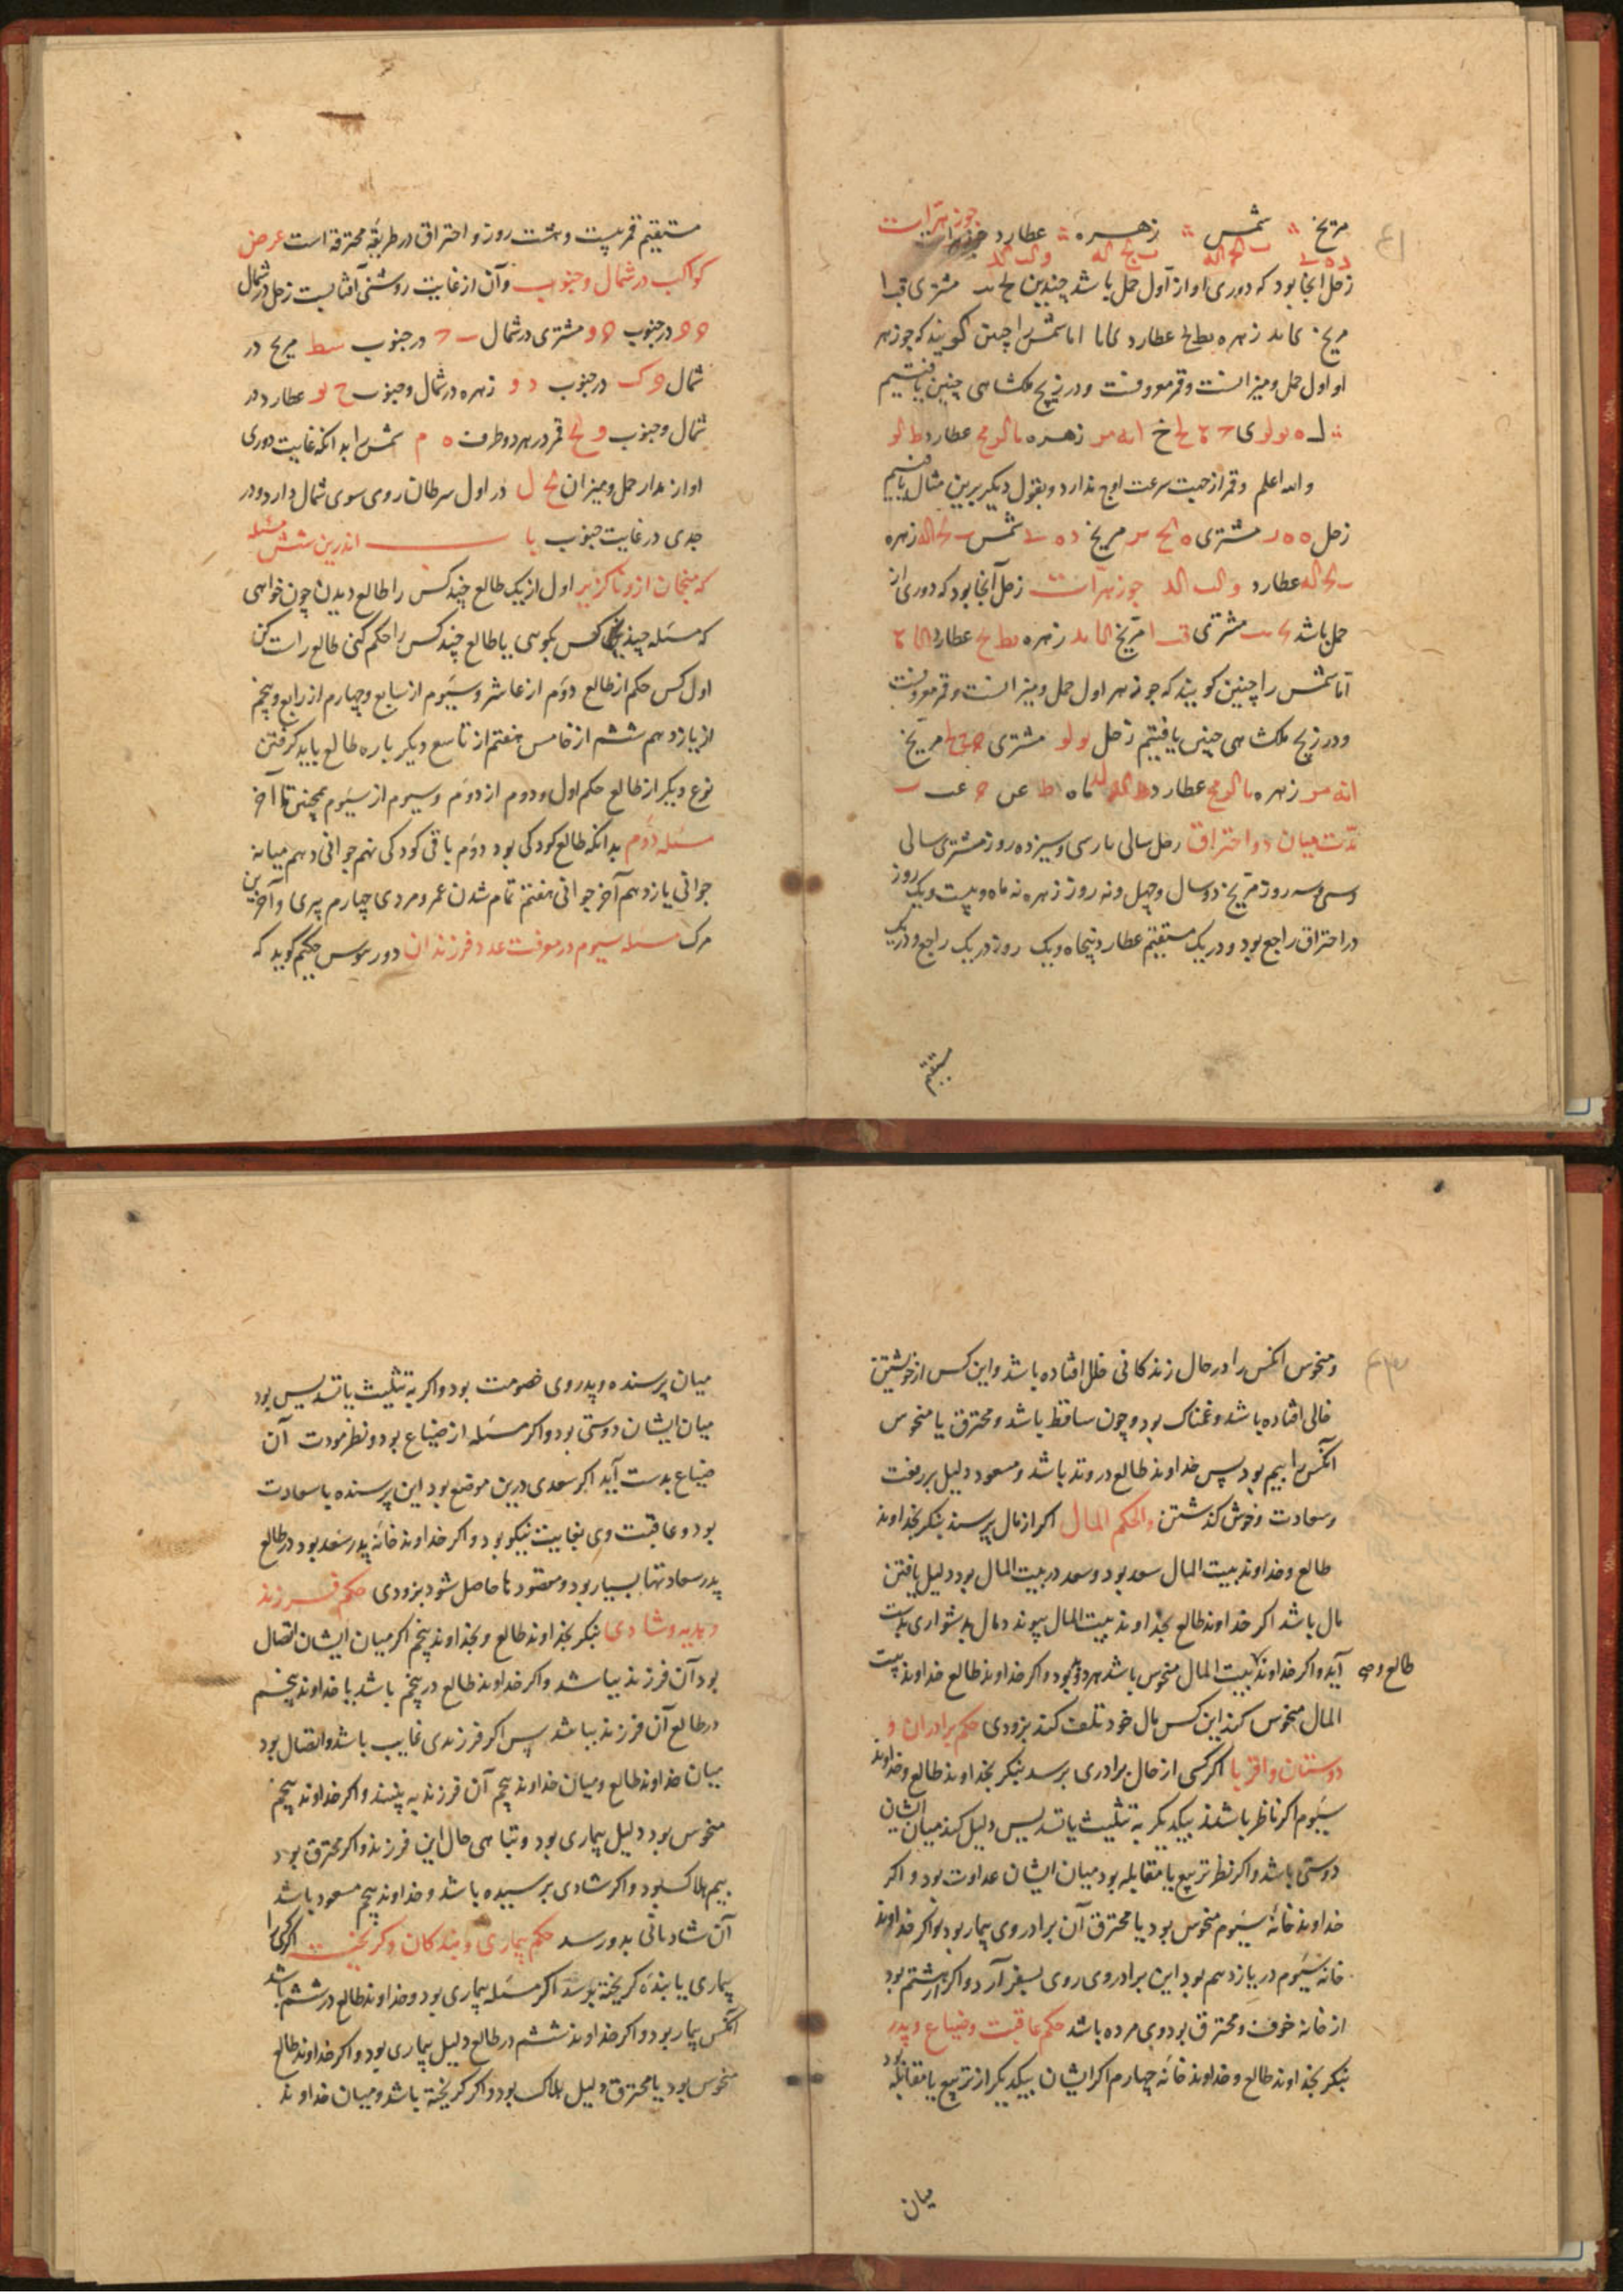 مریخ شمس زهره عطارد جوزهرات
زحل آنجا بود که دوری او از اول حمل باشد چندین مشتری
مریخ زهره عطارد اما شمس را چنین گویند که جوزهر
او اول حمل و میزانست و قمر معروفست و در زیج ملکشاهی چنین یافتیم
زهره عطارد
والله اعلم و قمر از جهت سرعت اوج ندارد و بقول دیکر برین مثال یافتیم
زحل مشتری مریخ شمس زهره
عطارد جوزهرات زحل آنجا بود که دوری از
حمل باشد مشتری مریخ زهره عطارد
اما شمس را چنین کویند که جوزهر اول حمل و میزانست و قمر معروفست
و در زیج ملکشاهی چنین یافتیم زحل مشتری مریخ
زهره عطارد ماه
مدت میان دو احتراق زحل سالی پارسی و سیزده روز مشتری سالی
و سی و سه روز مریخ دو سال و چهل و نه روز زهره نه ماه و بیست و یک روز
در احتراق راجع بود و در یک مستقیم عطارد پنجاه و یک روز در یک راجع و در یک
مستقیم
مستقیم قمر بیست و هشت روز و احتراق در طریقه محترقه است عرض
کواکب در شمال و جنوب و آن از غایت روشنی آفتابست زحل در شمال
در جنوب مشتری در شمال در جنوب مریخ در
شمال در جنوب زهره در شمال و جنوب عطارد در
شمال و جنوب قمر در هر دو طرف شمس بدانکه غایت دوری
او از مدار حمل و میزان در اول سرطان روی سوی شمال دارد و در
جدی در غایت جنوب باب اندرین شش مسئله
که منجمان را از و ناگزیر اول از یک طالع چند کس را طالع دیدن چون خواهی
که مسئله چند کس بکوئی یا طالع چند کس را حکم کنی طالع راست کن
اول کس حکم از طالع دوم از عاشر و سیوم از سابع و چهارم از رابع و پنجم
از یازدهم ششم از خامس هفتم از تاسع دیکر باره طالع باید کرفتن
نوع دیکر از طالع حکم اول و دوم از دوم و سیوم از سیوم همچنین تا آخر
مسئله دوم بدانکه طالع کودکی بود دوم باقی کودکی نهم جوانی دهم میانه
جوانی یازدهم آخر جوانی هفتم تمام شدن عمر و مردی چهارم پیری و آخرین
مرک مسئله سیوم در معرفت عدد فرزندان دورسوس حکیم کوید که
و منحوس آنکس را در حال زندکانی خلل افتاده باشد و این کس از خویشتن
خالی افتاده باشد و غمناک بود و چون ساقط باشد و محترق یا منحوس
آنکس را بیم بود پس خداوند طالع در وتد باشد و مسعود دلیل بر رفعت
و سعادت و خوش کذشتن الحکم المال اکر از مال پرسند بنکر بخداوند
طالع و خداوند بیت المال سعد بود و سعد در بیت المال بود دلیل یافتن
مال باشد اکر خداوند طالع بخداوند بیت المال پیوندد مال بدشواری بدست
آید و اکر خداوند بیت المال منحوس باشد بود و اکر خداوند طالع خداوند بیت
طالع و
المال منحوس کند این کس مال خود تلف کند بزودی حکم برادران و
دوستان و اقربا اکر کسی از حال برادری پرسد بنکر بخداوند طالع و خداوند
سیوم اکر ناظر باشند بیکدیکر به تثلیث یا تسدیس دلیل کند میان ایشان
دوستی باشد و اکر نظر تربیع یا مقابله بود میان ایشان عداوت بود و اکر
خداوند خانه سیوم منحوس بود یا محترق آن برادر وی بیمار بود و اکر خداوند
خانه سیوم در یازدهم بود این برادر وی روی بسفر آرد و اکر هشتم بود
از خانه خوف و محترق بود وی مرده باشد حکم عاقبت و ضیاع و پدر
بنکر بخداوند طالع و خداوند خانه چهارم اکر ایشان بیکدیکر از تربیع یا مقابله بود
میان
میان پرسنده و پدر وی خصومت بود و اکر به تثلیث یا تسدیس بود
میان ایشان دوستی بود و اکر مسئله از ضیاع بود و نظر مودت آن
ضیاع بدست آید اکر سعدی درین موضع بود این پرسنده با سعادت
بود و عاقبت وی بغایت نیکو بود و اکر خداوند خانه پدر سعد بود در طالع
پدر سعادتها بسیار بود و مقصودها حاصل شود بزودی حکم فرزند
و هدیه و شادی بنکر بخداوند طالع و بخداوند پنجم اکر میان ایشان اتصال
بود آن فرزند بباشد و اکر خداوند طالع در پنجم باشد یا خداوند پنجم
در طالع آن فرزند بباشد پس اکر فرزندی غایب باشد و اتصال بود
میان خداوند طالع و میان خداوند پنجم آن فرزند به بینند و اکر خداوند پنجم
منحوس بود دلیل بیماری بود و تباهی حال این فرزند و اکر محترق بود
بیم هلاک بود و اکر شادی پرسیده باشد و خداوند پنجم مسعود باشد
آن شادمانی بدو رسد حکم بیماری و بندکان و کریخته اکر کسی را
بیماری یا بنده کریخته پرسد اکر مسئله بیماری بود و خداوند طالع در ششم باشد
آنکس بیمار بود و اکر خداوند ششم در طالع دلیل بیماری بود و اکر خداوند طالع
منحوس بود یا محترق دلیل هلاک بود و اکر کریخته باشد و میان خداوند